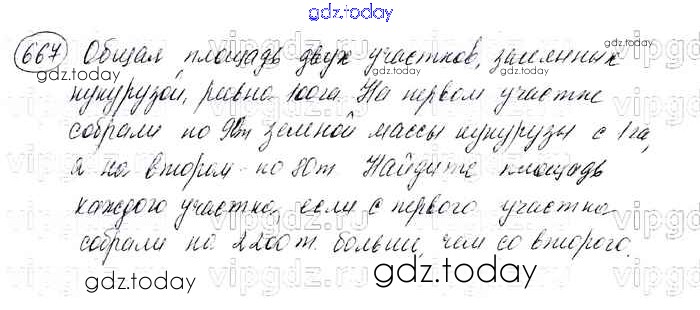 gdz.today
667 Общая площадь двух участков, засеянных
кукурузой, равна 100га. На первом участке
собрали по 90т зеленой массы кукурузы с 1 га,
а на втором - по 80т. Найдите площадь
каждого участка, если с первого участка
собрали на 2200т больше, чем со второго.
gdz.today
gdz.today
gdz.today
gdz.today